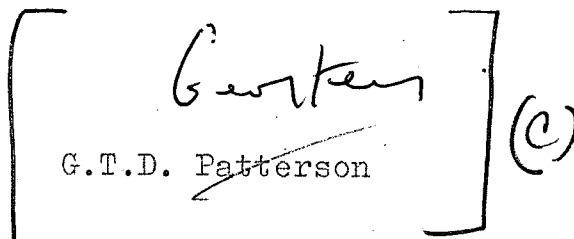 G.T.D. Patterson
(C)